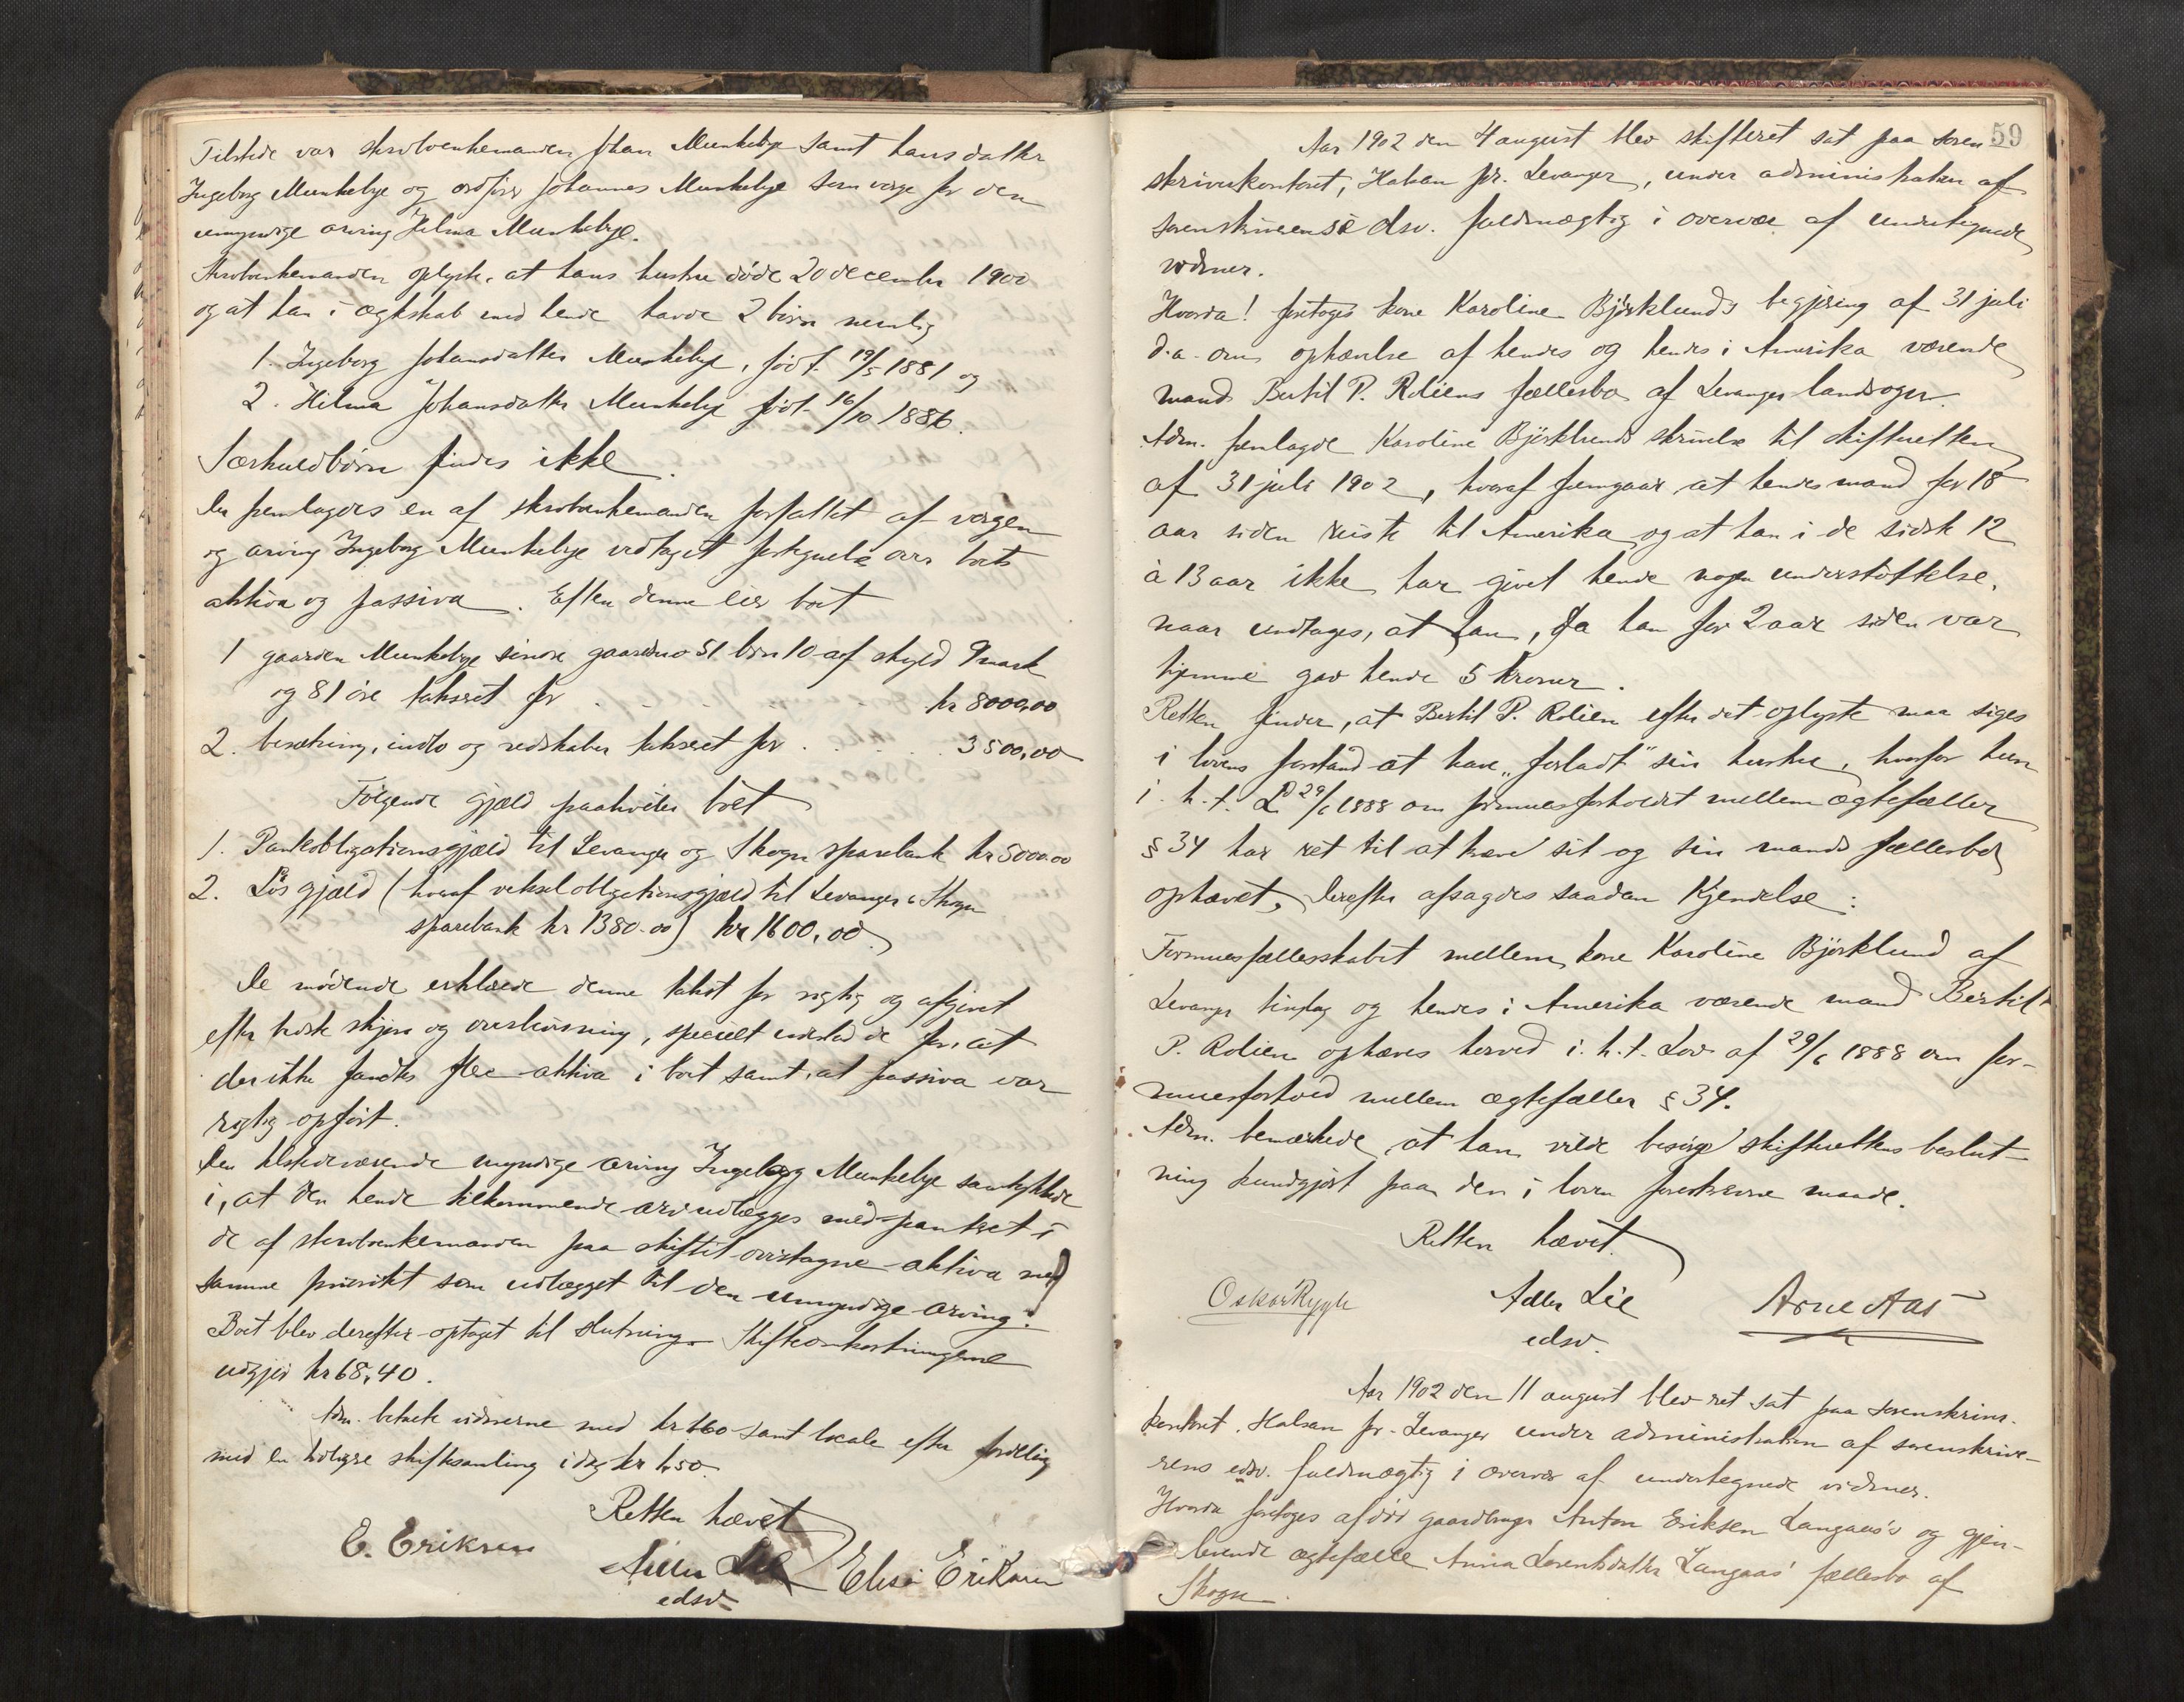 Tilstede var skrobenkemanden Johan Munkebye samt hans datter
Ingeborg Munkebye og ordfører Johannes Munkebye som verge for den
umyndige arving Hilma Munkebye.
Skrobenkemanden oplyste, at hans hustru døde 20 december 1900
og at han i ægteskab med hende havde 2 børn nemlig
1. Ingeborg Johansdatter Munkebye, født 19/5 1881 og
2. Hilma Johansdatter Munkebye født 16/10 1886.
Særkuldbørn findes ikke.
Der fremlagdes en af skrobenkemanden forfattet af vergen
og arving Ingeborg Munkebye vedtaget fortegnelse over boets
aktiva og passiva. Efter denne eier boet
1 gaarden Munkebye søndre gaardsno 51 brn 10 af skyld 9 mark
og 81 øre takseret for . . . . . kr 8000,00
2. besætning, indbo og redskaber takseret for . . . . . 3500,00
Følgende gjæld paahviler boet
1. Panteobligationsgjæld til Levanger og Skogn sparebank kr 5000.00
2. Løs gjæld (hvoraf veksel obligationsgjæld til Levanger & Skogn
sparebank kr 1380.00) kr 1600,00.
De mødende erklærede denne takst for rigtig og afgivet
efter bedste skjøn og overbevisning, specielt indestod de for, at
der ikke fandtes flere aktiva i boet samt, at passiva var
rigtig opført.
Den tilstedeværende myndige arving Ingeborg Munkebye samtykkede
i, at den hende tilkommende arv udlægges med pantret i
de af skrobenkemanden paa skiftet overtagne aktiva med
samme prioritet som udlægget til den umyndige arving.
Boet blev derefter optaget til slutning. Skifteomkostningerne
udgjør kr 68,40.
Adm. betalte vidnerne med kr 1.60 samt locale efter fordeling
med en tidligere skiftesamling idag kr 1,50.
Retten hævet
E. Eriksen
Adler Lie Elise Eriksen
edsv.
59
Aar 1902 den 4 august blev skifteret sat paa soren
skriverkontoret, Halsan pr. Levanger, under administration af
sorenskriverens edsv. fuldmægtig i overvær af undertegnede
vidner.
Hvorda! foretoges kone Karoline Björklunds begjæring af 31 juli
d.a. om ophævelse af hendes og hendes i Amerika værende
mand Bertil P. Roliens fællesbo af Levanger landsogn.
Adm. fremlagde Karoline Björklunds skrivelse til skifteretten
af 31 juli 1902, hvoraf fremgaar at hendes mand for 18
aar siden reiste til Amerika og at han i de sidste 12
à 13 aar ikke har givet hende nogen understøttelse,
naar undtages, at han, da han for 2 aar siden var
hjemme gav hende 5 kroner.
Retten finder, at Bertil P. Rolien efter det oplyste maa siges
i lovens forstand at have "forladt" sin hustru, hvorfor hun
i. h. t. L 29/6 1888 om formuesforholdet mellem ægtefæller
§ 34 har ret til at kræve sit og sin mands fællesbo
ophævet, derefter afsagdes saadan Kjendelse:
Formuesfællesskabet mellem kone Karoline Björklund af
Levanger tinglag og hendes i Amerika værende mand Bertil
P. Rolien ophæves herved i. h. t. Lov af 29/6 1888 om for-
muesforhold mellem ægtefæller § 34.
Adm. bemærkede, at han vilde besørge skifterettens beslut-
ning kundgjort paa den i loven foreskrevne maade.
Retten hævet.
Oskar Rygh Adler Lie Arne Aas
edsv.
Aar 1902 den 11 august blev ret sat paa sorenskriver-
kontoret. Halsan pr. Levanger under administration af sorenskrive-
rens edsv. fuldmægtig i overvær af undertegnede vidner.
Hvorda foretoges afdød gaardbruger Anton Eriksen Langaas's og gjen-
levende ægtefælle Anna Lorentsdatter Langaas' fællesbo af
Skogn.